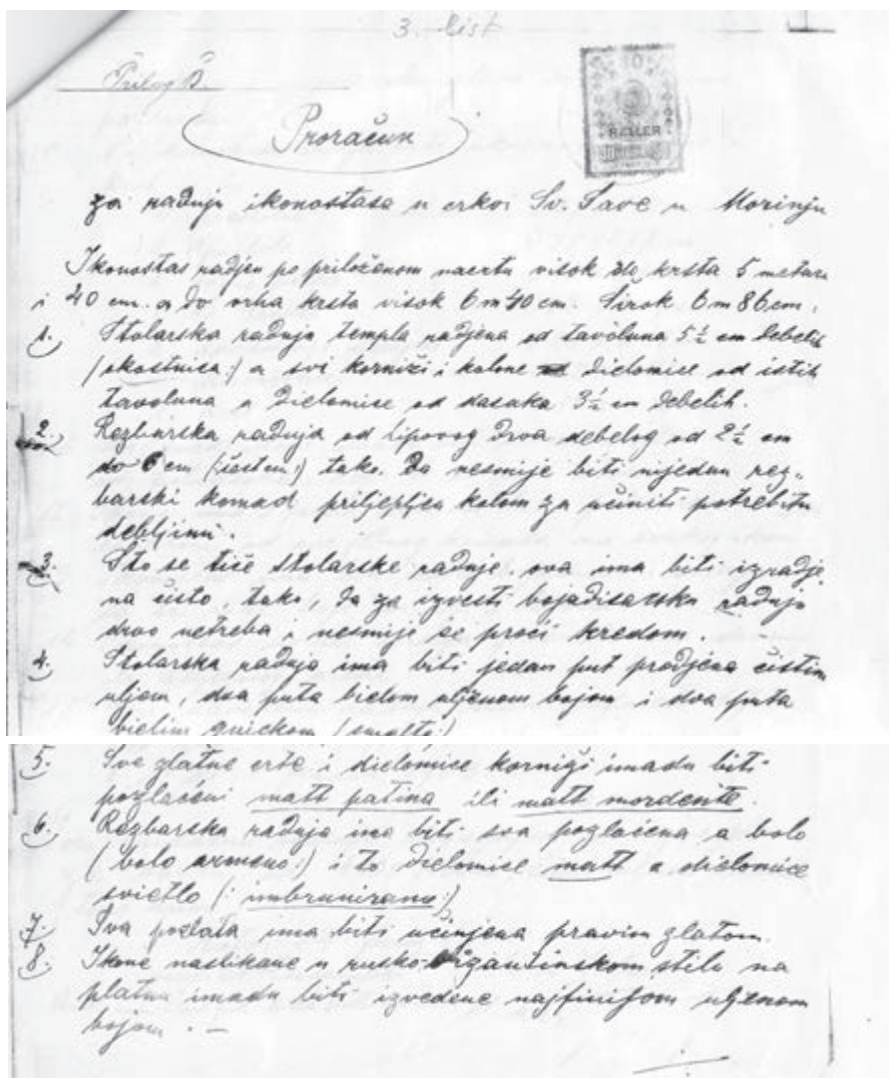 3. list
Prilog B.
10
HELLER
Proračun
za radnju ikonostasa u crkvi Sv. Save u Morinju
Ikonostas radjen po priloženom nacrtu visok do krsta 5 metara
i 40 cm. a do vrha krsta visok 6 m 40 cm. Širok 6 m 86 cm.
1. Stolarska radnja templa radjena od tavoluna 5½ cm debelih
(okostnica:) a svi korniži i kolone dielomice od istih
tavoluna a dielomice od dasaka 3½ cm debelih.
2. Rezbarska radnja od lipovog drva debelog od 2½ cm
do 6 cm (šestcm:) tako. Da nesmije biti nijedan rez-
barski komad priljepljen kolom za učiniti potrebitu
debljinu.
3. Što se tiče stolarske radnje, ova ima biti izradje
na čisto, tako, da za izvesti bojadisarsku radnju
drvo netreba i nesmije se proći kredom.
4. Stolarska radnja ima biti jedan put prodjena čistim
uljem, dva puta bielom uljenom bojom i dva puta
bielim (smalto:)
5. Sve zlatne crte i dielomice korniži imadu biti
pozlaćeni matt patina ili matt mordente.
6. Rezbarska radnja ima biti sva pozlaćena a bolo
(bolo armeno:) i to dielomice matt a dielomice
svietlo (: imbrunirano:)
7. Sva pozlata ima biti učinjena pravim zlatom.
8. Ikone naslikane u rusko-bizantinskom stilu na
platnu imadu biti izvedene najfinijom uljenom
bojom. —